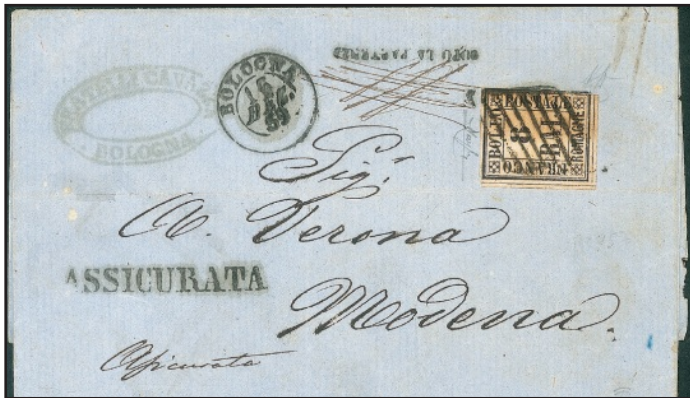 FRATELLI CAVAZZA
BOLOGNA
BOLOGNA
DOPO LA PARTENZA
BOLLO POSTALE
ROMAGNE
FRANCO
8
BAJ
Sig.r
A. Verona
ASSICURATA
Modena.
Assicurata